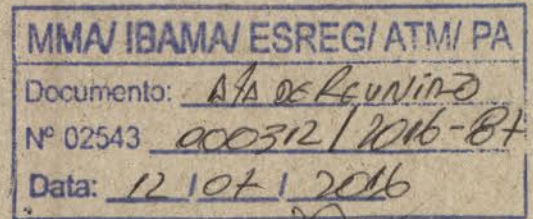 MMA/ IBAMA/ ESREG/ ATM/ PA
Documento: ATA DE REUNIÃO
Nº 02543 000312 / 2016-87
Data: 12 / 07 / 2016